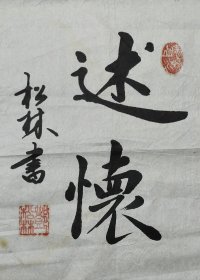 述懷
松林書